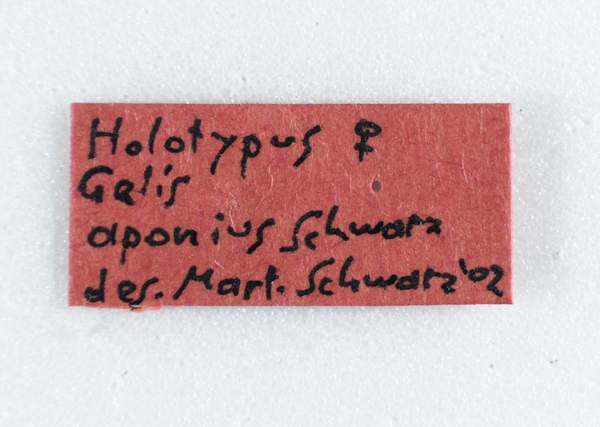 Holotypus ♀
Gelis
aponius Schwarz
des. Mart. Schwarz '02